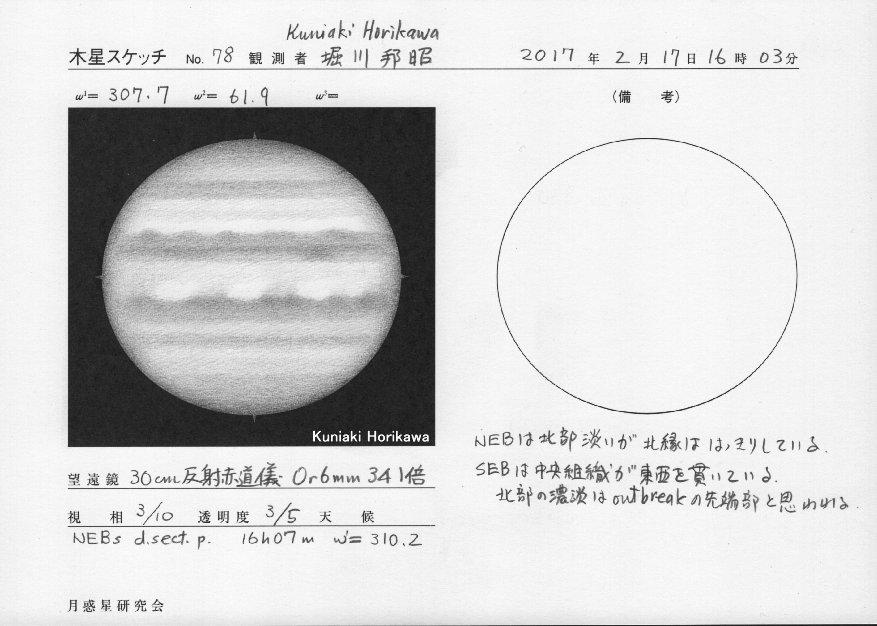 Kuniaki Horikawa
木星スケッチ No. 78 観測者 堀川邦昭 2017年2月17日16時03分
ω¹= 307.7 ω²= 61.9 ω³=
(備 考)
Kuniaki Horikawa
NEBは北部淡いが北縁ははっきりしている.
SEBは中央組織が東西を貫いている.
北部の濃淡はoutbreakの先端部と思われる.
望遠鏡 30cm反射赤道儀 Or6mm 341倍
視相 3/10 透明度 3/5 天候
NEBs d.sect. p. 16h07m ω¹= 310.2
月惑星研究会